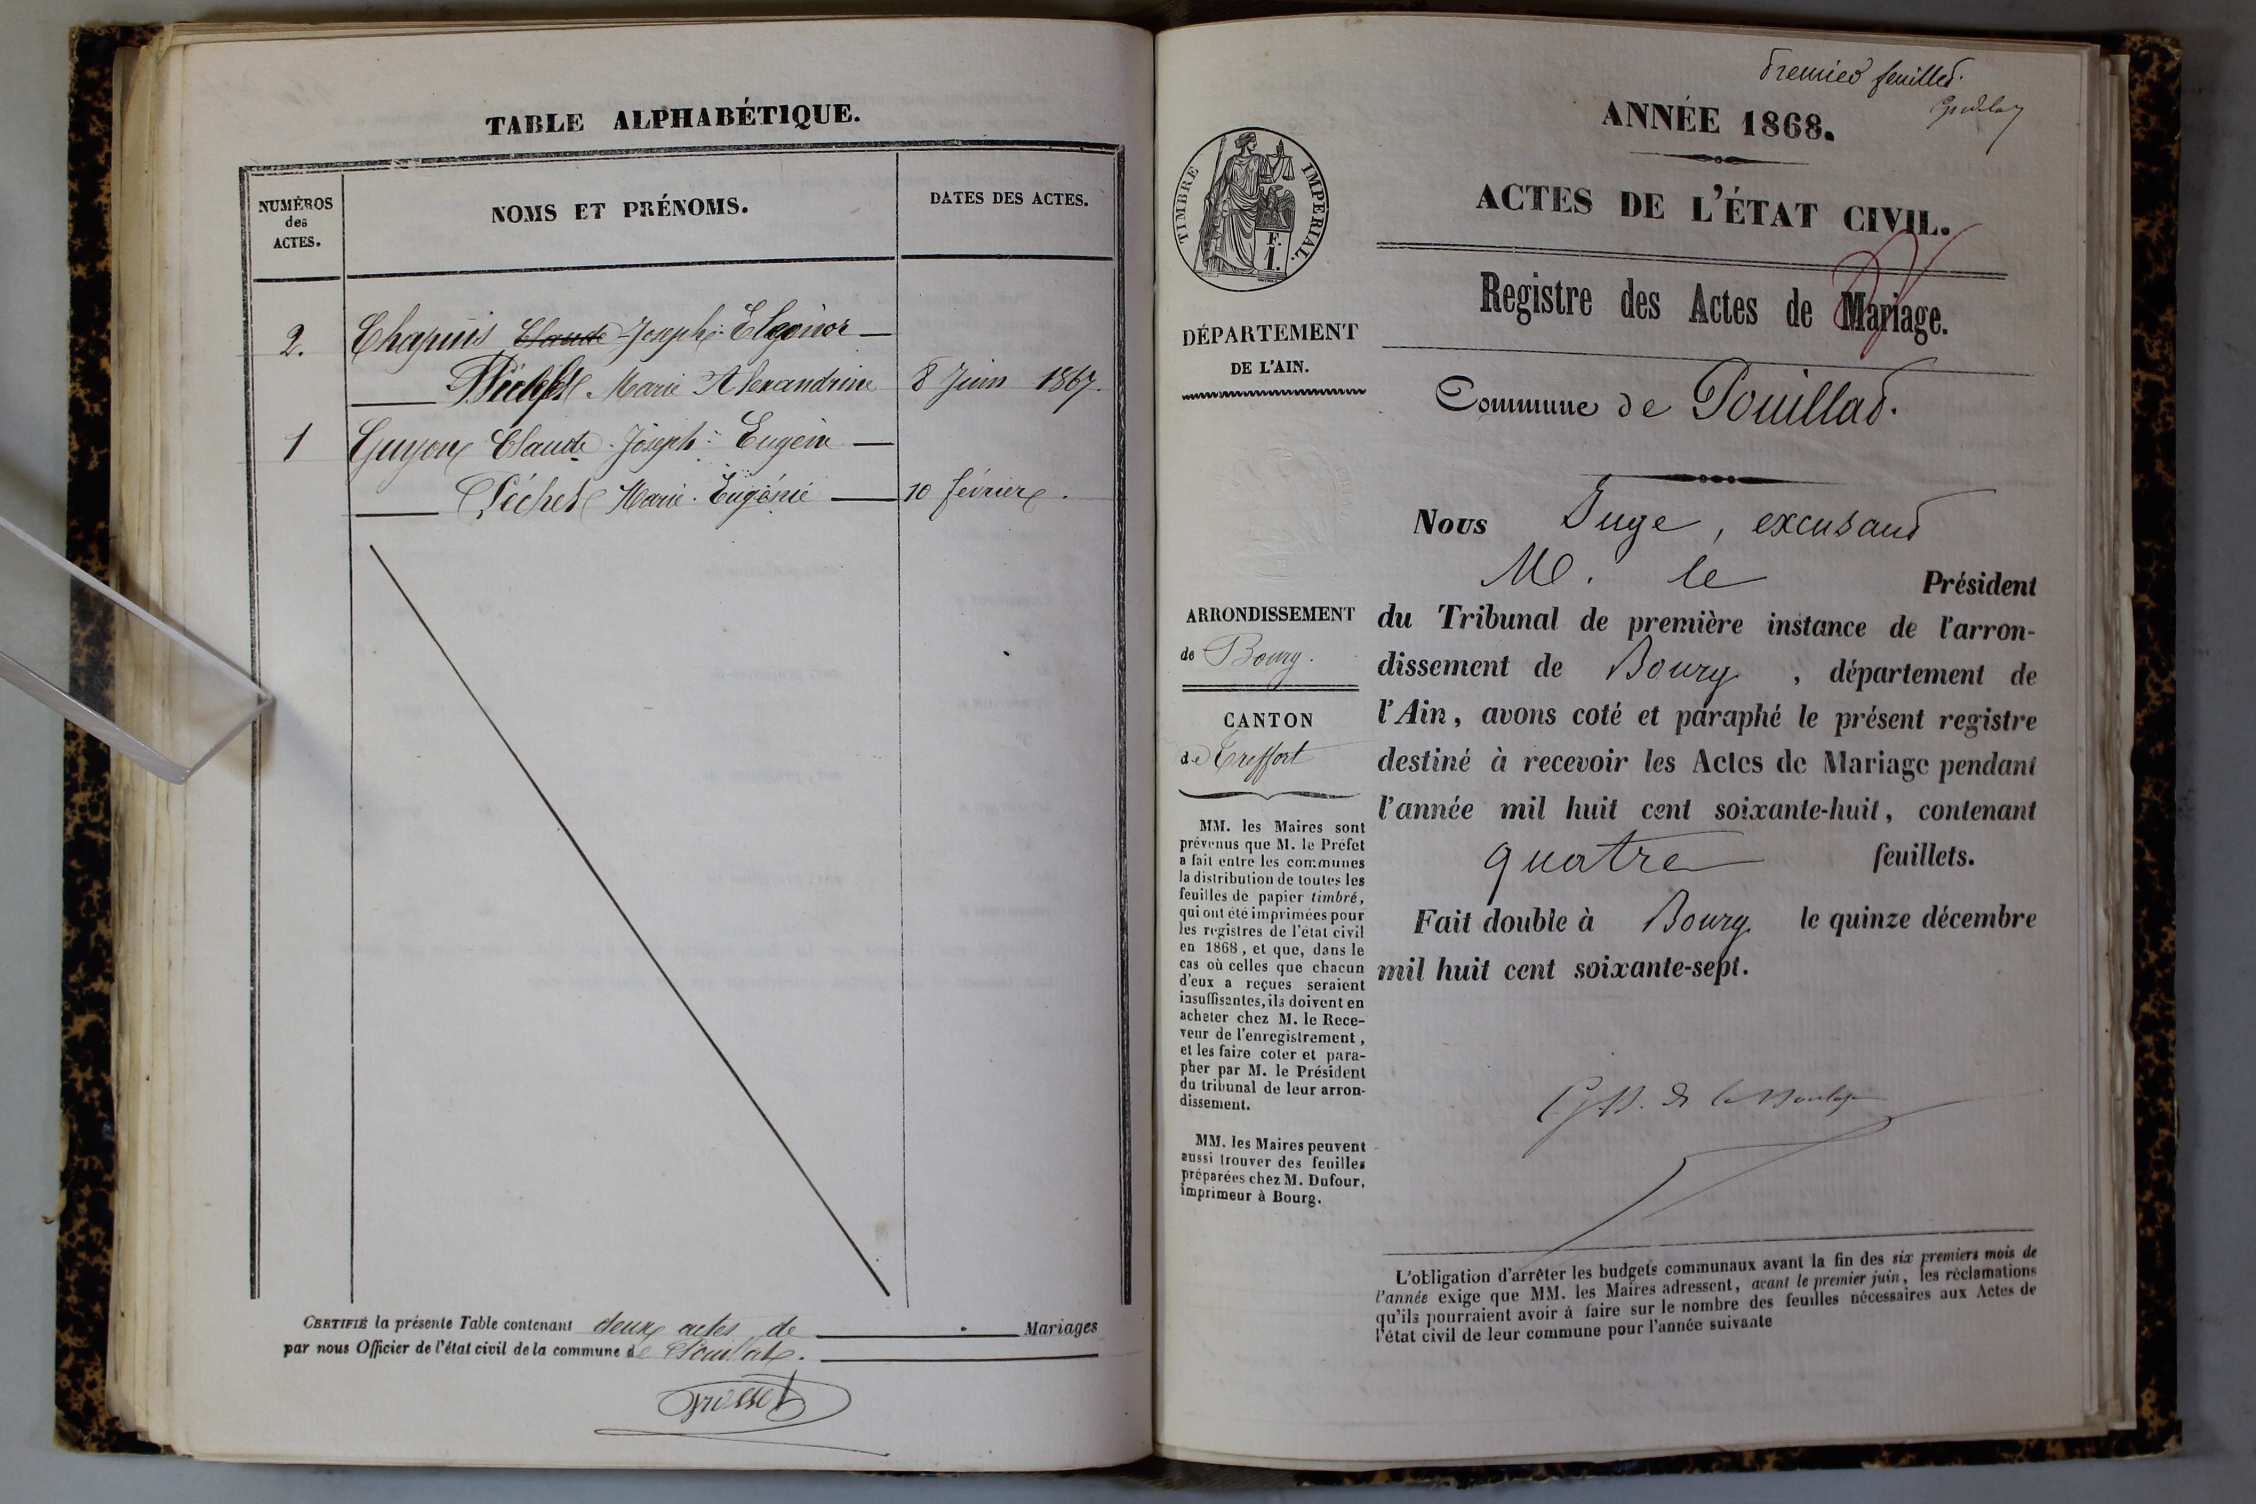 TABLE ALPHABÉTIQUE.
NUMÉROS
des
ACTES.
NOMS ET PRÉNOMS.
DATES DES ACTES.
2. Chapuis Claude Joseph Eléonor
Marie Alexandrine 8 Juin 1867.
1 Guyon Claude Joseph Eugène
Péchet Marie Eugénie 10 février.
CERTIFIÉ la présente Table contenant deux actes de Mariages
par nous Officier de l'état civil de la commune de Pouillat.
premier feuillet.
ANNÉE 1868.
TIMBRE IMPERIAL.
F.
1.
ACTES DE L'ÉTAT CIVIL.
Registre des Actes de Mariage.
DÉPARTEMENT
DE L'AIN.
Commune de Pouillat.
Nous Juge, excusant
M. le Président
du Tribunal de première instance de l'arron-
dissement de Bourg, département de
l'Ain, avons coté et paraphé le présent registre
destiné à recevoir les Actes de Mariage pendant
l'année mil huit cent soixante-huit, contenant
quatre feuillets.
Fait double à Bourg le quinze décembre
mil huit cent soixante-sept.
ARRONDISSEMENT
de Bourg.
CANTON
de Treffort
MM. les Maires sont
prévenus que M. le Préfet
a fait entre les communes
la distribution de toutes les
feuilles de papier timbré,
qui ont été imprimées pour
les registres de l'état civil
en 1868, et que, dans le
cas où celles que chacun
d'eux a reçues seraient
insuffisantes, ils doivent en
acheter chez M. le Rece-
veur de l'enregistrement,
et les faire coter et para-
pher par M. le Président
du tribunal de leur arron-
dissement.
MM. les Maires peuvent
aussi trouver des feuilles
préparées chez M. Dufour,
imprimeur à Bourg.
L'obligation d'arrêter les budgets communaux avant la fin des six premiers mois de
l'année exige que MM. les Maires adressent, avant le premier juin, les réclamations
qu'ils pourraient avoir à faire sur le nombre des feuilles nécessaires aux Actes de
l'état civil de leur commune pour l'année suivante